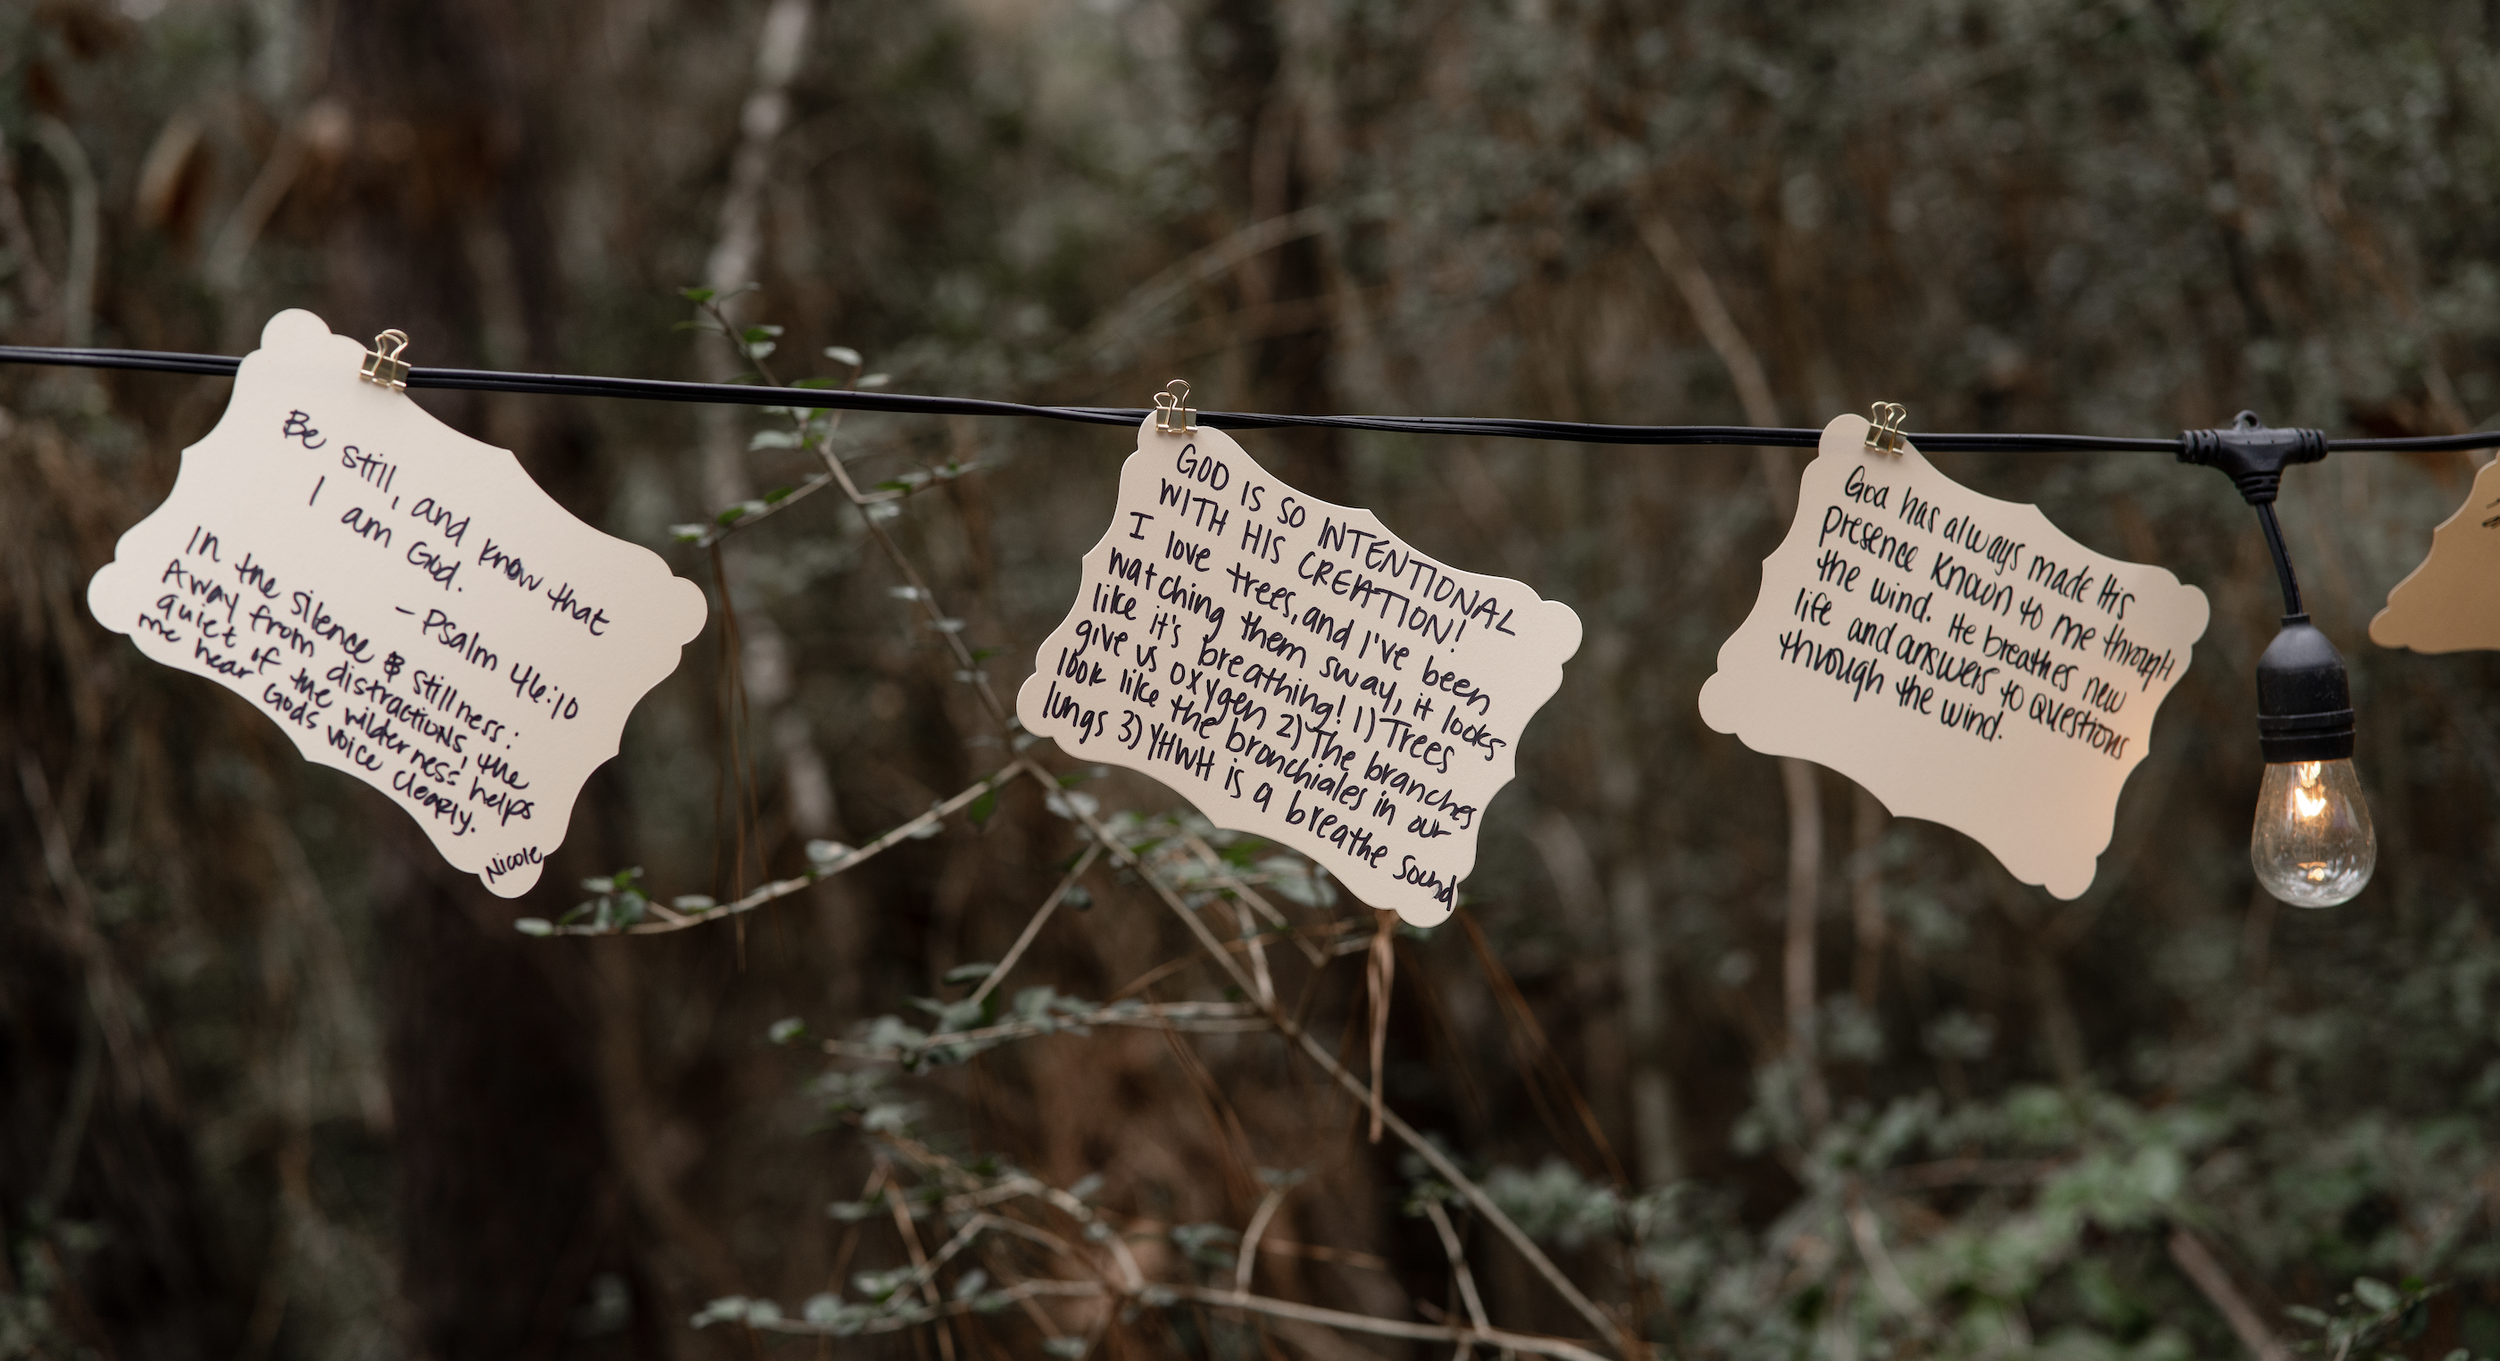 Be still, and know that
I am God.
- Psalm 46:10
In the silence & stillness:
Away from distractions, the
quiet of the wilderness helps
me hear Gods voice clearly.
Nicole
GOD IS SO INTENTIONAL
WITH HIS CREATION!
I love trees, and I've been
watching them sway, it looks
like it's breathing! 1) Trees
give us oxygen 2) The branches
look like the bronchiales in our
lungs 3) YHWH is a breathe sound
God has always made His
presence known to me through
the wind. He breathes new
life and answers to questions
through the wind.